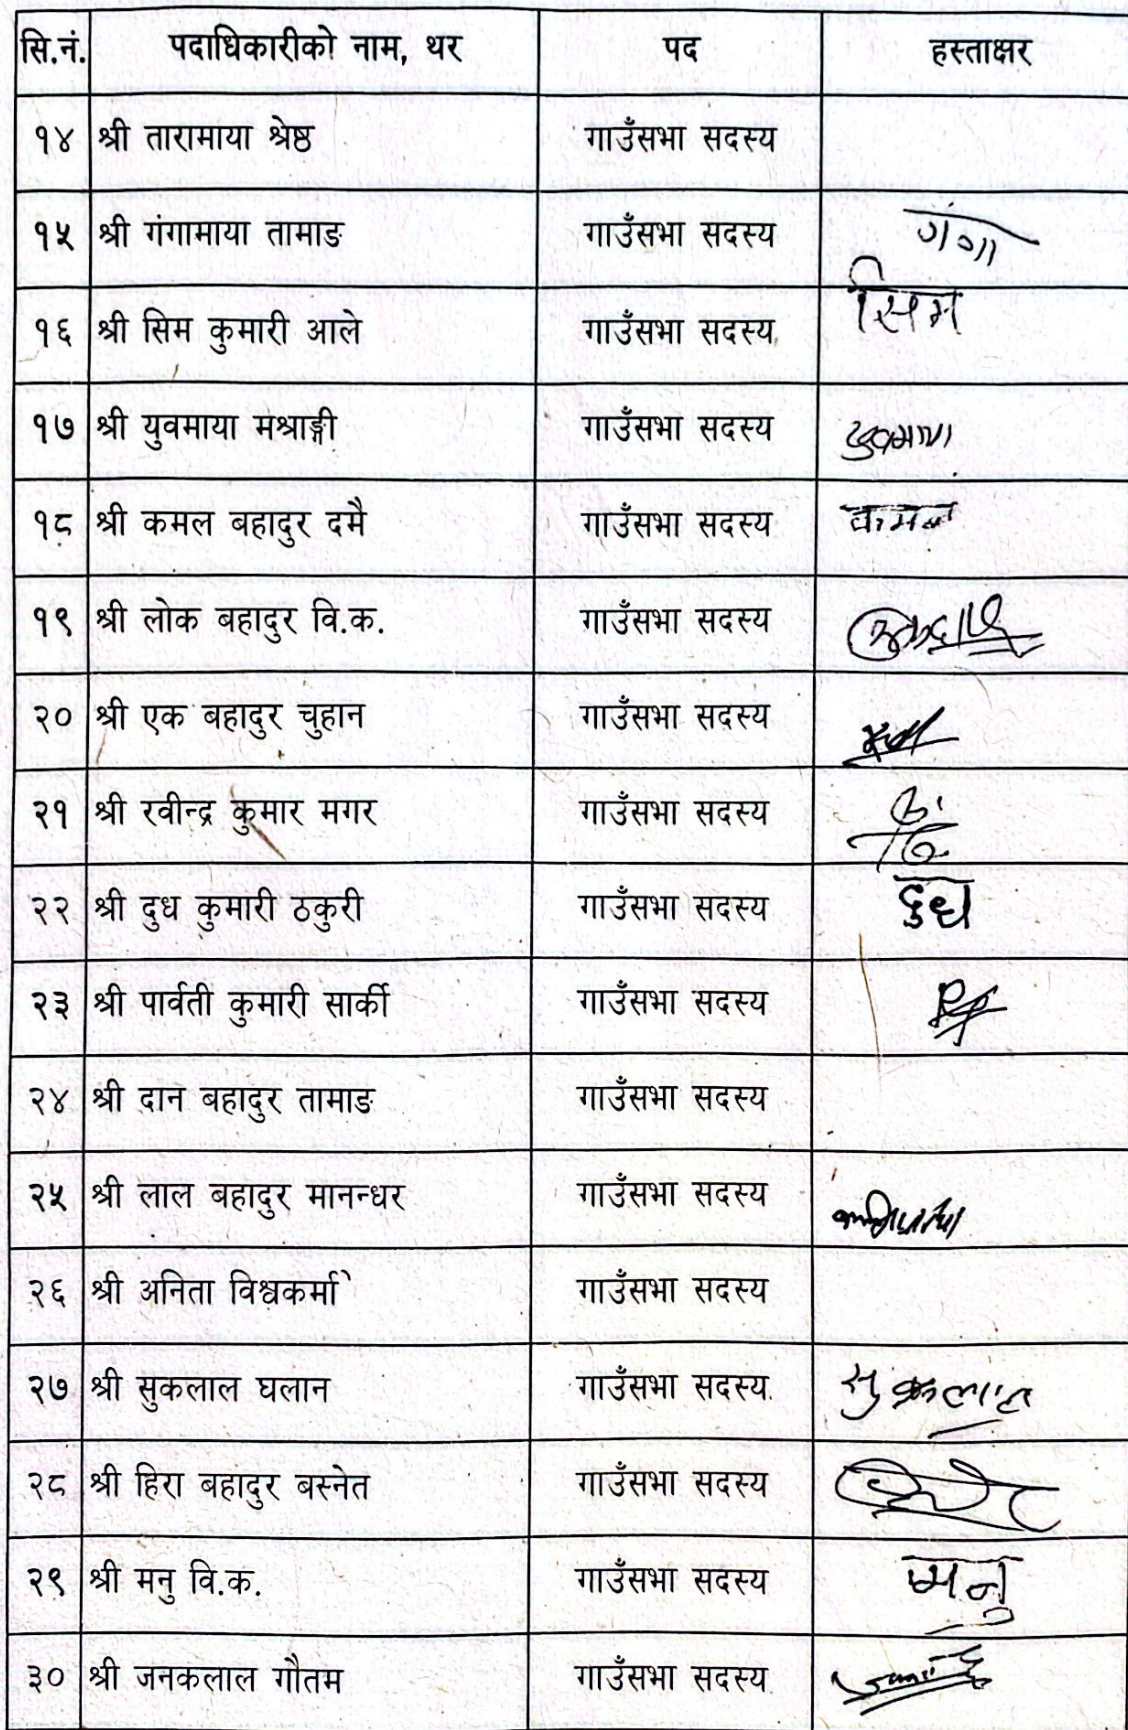 सि.नं. पदाधिकारीको नाम, थर पद हस्ताक्षर
१४ श्री तारामाया श्रेष्ठ गाउँसभा सदस्य
१५ श्री गंगामाया तामाङ गाउँसभा सदस्य गंगा
१६ श्री सिम कुमारी आले गाउँसभा सदस्य सिम
१७ श्री युवमाया मश्राङ्गी गाउँसभा सदस्य युवमाया
१८ श्री कमल बहादुर दमै गाउँसभा सदस्य कमल
१९ श्री लोक बहादुर वि.क. गाउँसभा सदस्य
२० श्री एक बहादुर चुहान गाउँसभा सदस्य
२१ श्री रवीन्द्र कुमार मगर गाउँसभा सदस्य
२२ श्री दुध कुमारी ठकुरी गाउँसभा सदस्य दुध
२३ श्री पार्वती कुमारी सार्की गाउँसभा सदस्य
२४ श्री दान बहादुर तामाङ गाउँसभा सदस्य
२५ श्री लाल बहादुर मानन्धर गाउँसभा सदस्य
२६ श्री अनिता विश्वकर्मा गाउँसभा सदस्य
२७ श्री सुकलाल घलान गाउँसभा सदस्य सुकलाल
२८ श्री हिरा बहादुर बस्नेत गाउँसभा सदस्य
२९ श्री मनु वि.क. गाउँसभा सदस्य मनु
३० श्री जनकलाल गौतम गाउँसभा सदस्य